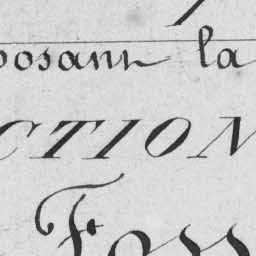 posant la
CTION
Foss